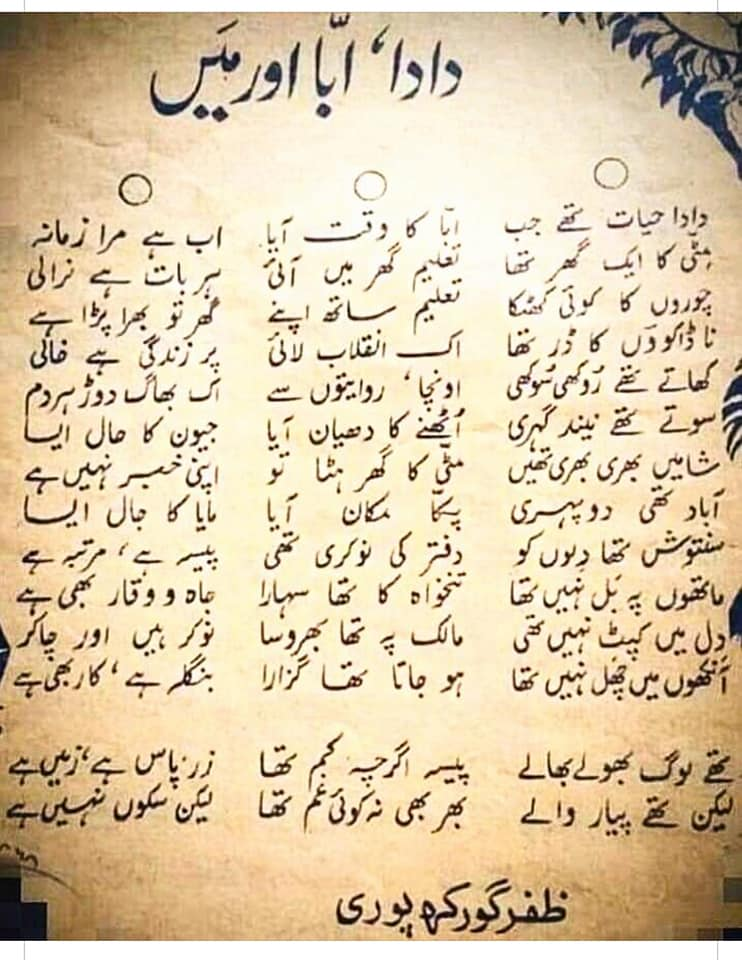 دادا، ابّا اور مَیں
دادا حیات تھے جب
مِٹّی کا ایک گھر تھا
چوروں کا کوئی کھٹکا
نا ڈاکوؤں کا ڈر تھا
کھاتے تھے رُوکھی سُوکھی
سوتے تھے نیند گہری
شامیں بھری بھری تھیں
آباد تھی دوپہری
سنتوش تھا دِلوں کو
ماتھوں پہ بَل نہیں تھا
دِل میں کپٹ نہیں تھی
آنکھوں میں چھَل نہیں تھا
تھے لوگ بھولے بھالے
لیکن تھے پیار والے
ابّا کا وقت آیا
تعلیم گھر میں آئی
تعلیم ساتھ اپنے
اک انقلاب لائی
اونچا، روایتوں سے
اُٹھنے کا دھیان آیا
مٹّی کا گھر ہٹا تو
پکّا مکان آیا
دفتر کی نوکری تھی
تنخواہ کا تھا سہارا
مالک پہ تھا بھروسا
ہو جاتا تھا گزارا
پیسہ اگرچہ کم تھا
پھر بھی نہ کوئی غم تھا
اب ہے مرا زمانہ
ہر بات ہے نرالی
گھر تو بھرا پڑا ہے
پر زندگی ہے خالی
اک بھاگ دوڑ ہر دم
جیون کا حال ایسا
اپنی خبر نہیں ہے
مایا کا جال ایسا
پیسہ ہے، مرتبہ ہے
جاہ و وقار بھی ہے
نوکر ہیں اور چاکر
بنگلہ ہے، کار بھی ہے
زر پاس ہے، زمیں ہے
لیکن سکوں نہیں ہے
ظفر گورکھپوری